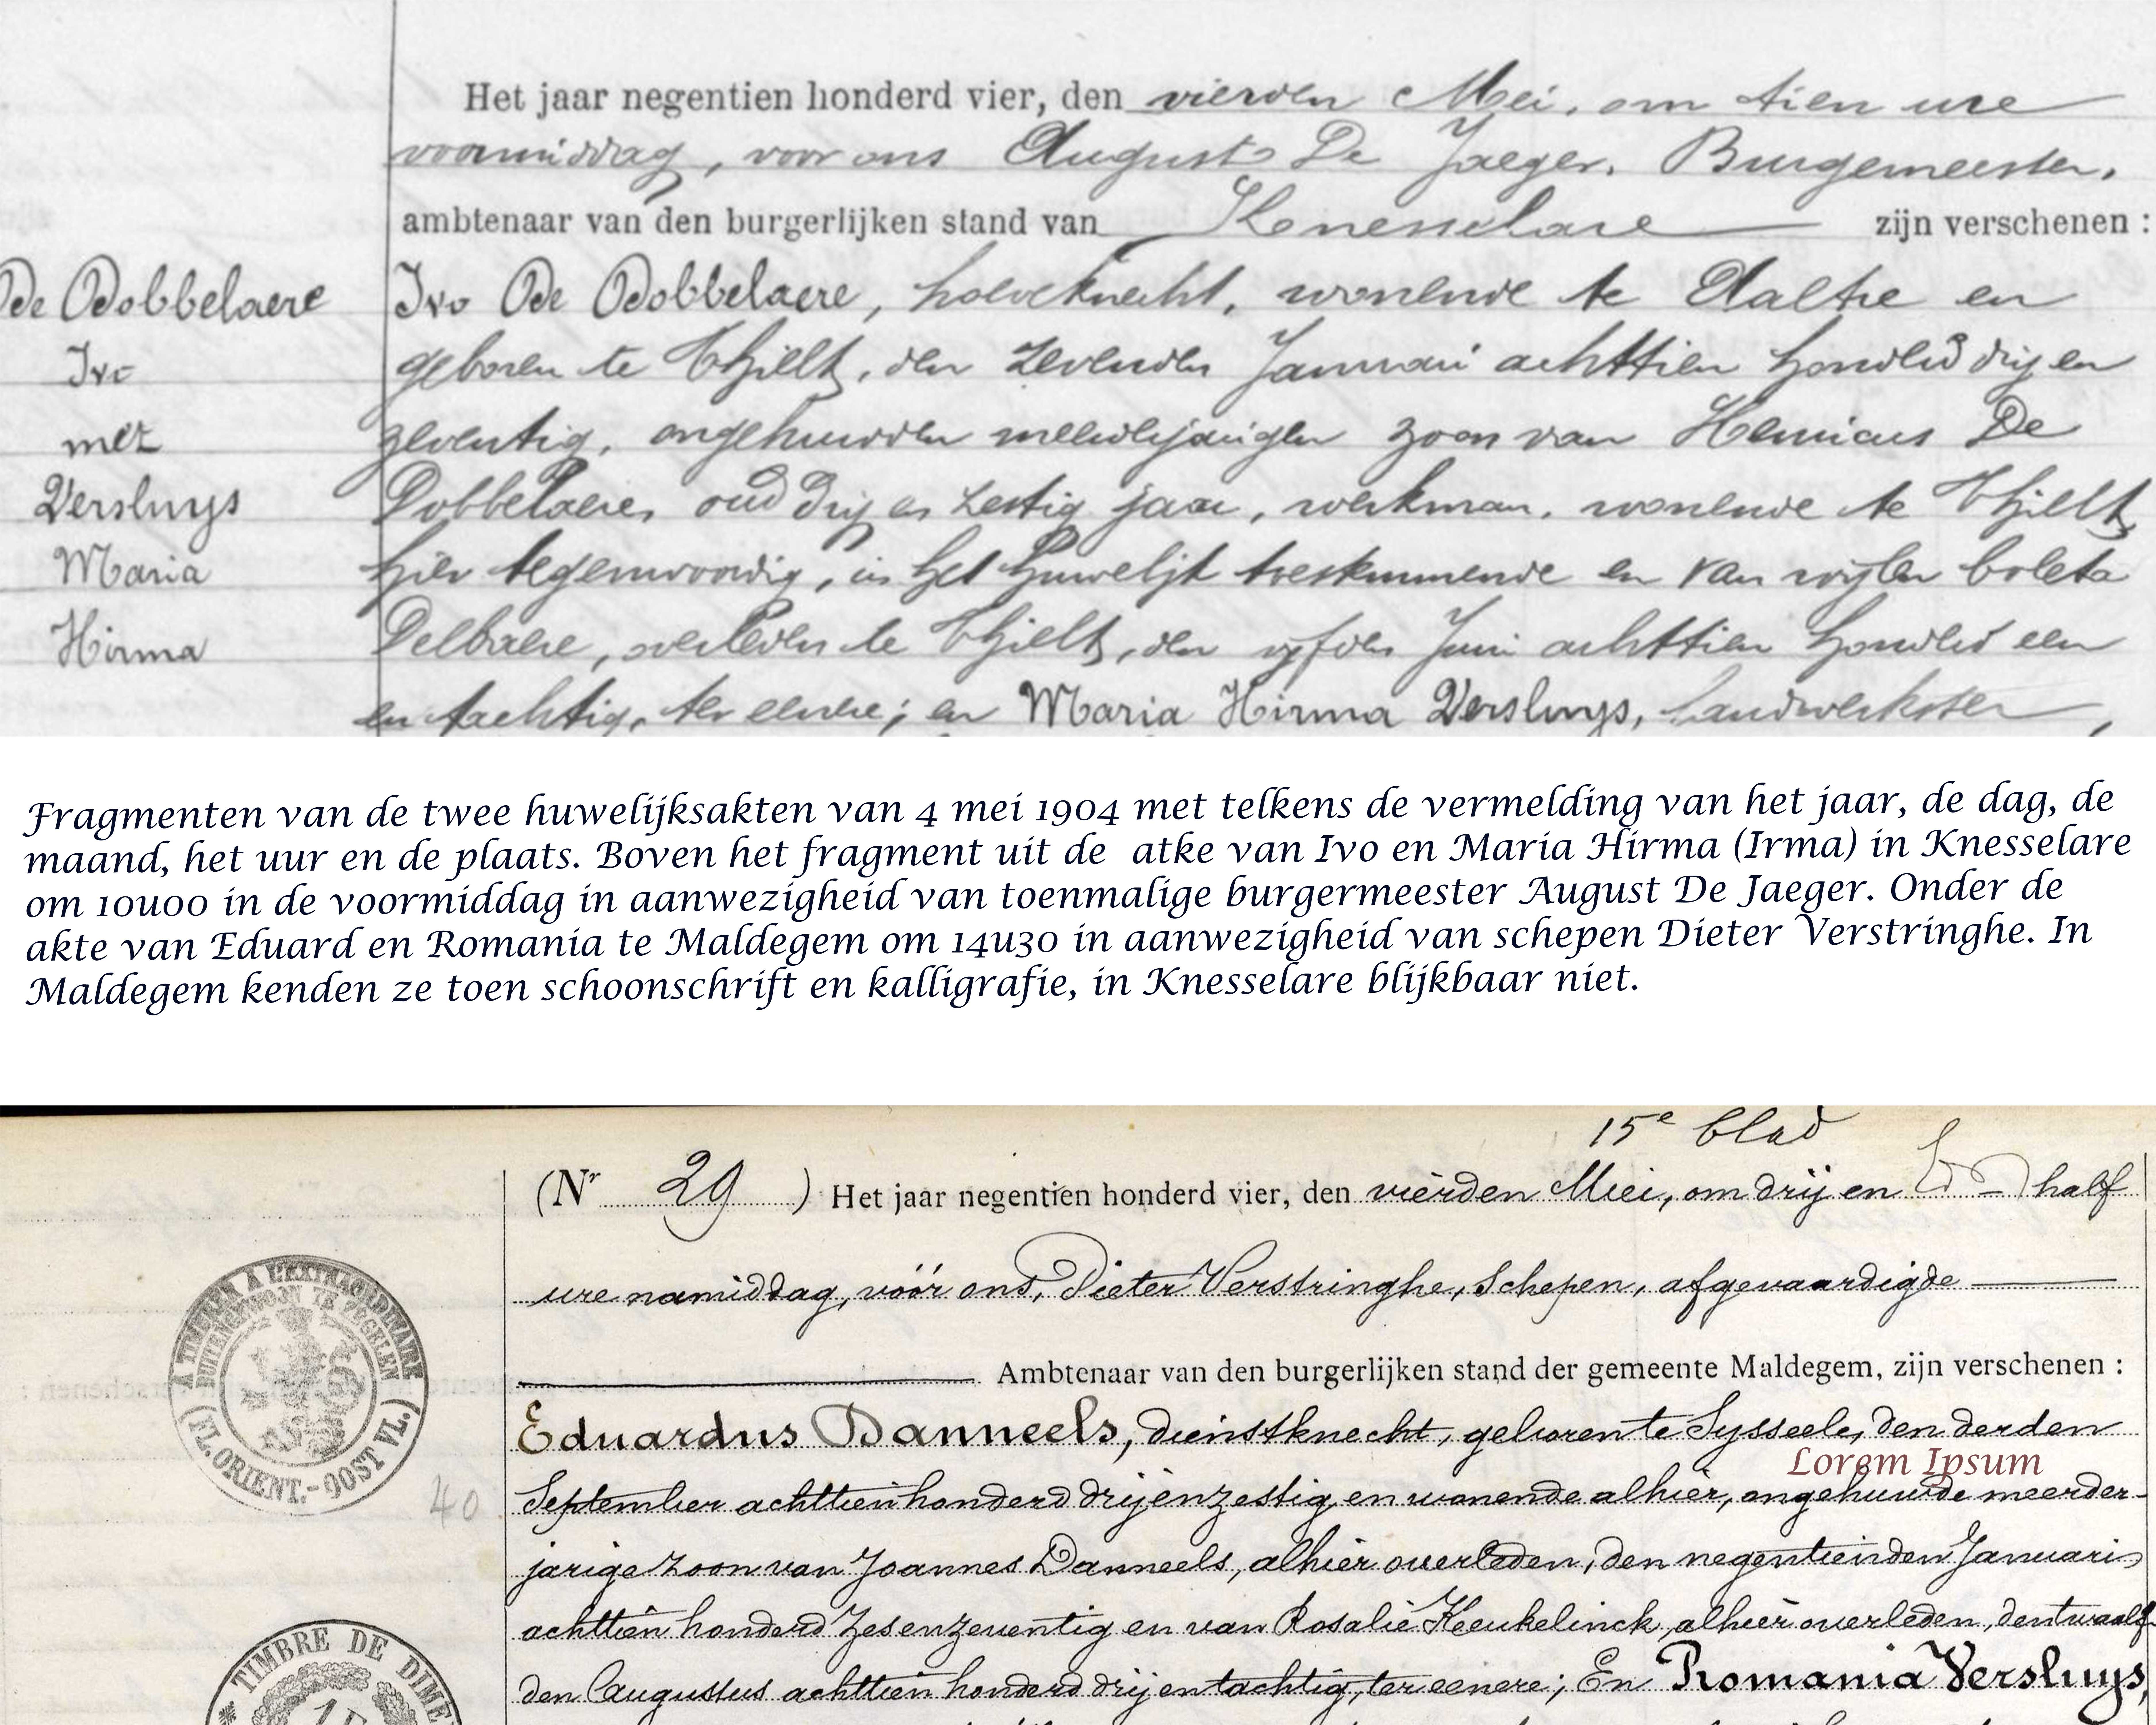 Het jaar negentien honderd vier, den vierden Mei, om tien ure
voormiddag, voor ons August De Jaeger, Burgemeester,
ambtenaar van den burgerlijken stand van Knesselare zijn verschenen :
De Dobbelaere
Ivo
met
Versluys
Maria
Hirma
Ivo De Dobbelaere, hoeveknecht, wonende te Aaltre en
geboren te Thielt, den zevenden Januari achttien honderd drij en
zeventig, ongehuwden meerderjarigen zoon van Henricus De
Dobbelaere, oud drij en zestig jaar, werkman, wonende te Thielt
hier tegenwoordig, in het huwelijk toestemmende en van wijlen Coleta
Delbaere, overleden te Thielt, den vijfden Juni achttien honderd een
en tachtig, ter eenre; en Maria Hirma Versluys, landwerkster,
Fragmenten van de twee huwelijksakten van 4 mei 1904 met telkens de vermelding van het jaar, de dag, de
maand, het uur en de plaats. Boven het fragment uit de atke van Ivo en Maria Hirma (Irma) in Knesselare
om 10u00 in de voormiddag in aanwezigheid van toenmalige burgermeester August De Jaeger. Onder de
akte van Eduard en Romania te Maldegem om 14u30 in aanwezigheid van schepen Dieter Verstringhe. In
Maldegem kenden ze toen schoonschrift en kalligrafie, in Knesselare blijkbaar niet.
15e blad
(Nr 29 ) Het jaar negentien honderd vier, den vierden Mei, om drij en half
ure namiddag, vóór ons, Pieter Verstringhe, Schepen, afgevaardigde
Ambtenaar van den burgerlijken stand der gemeente Maldegem, zijn verschenen :
Eduardus Danneels, dienstknecht, geboren te Sysseele, den derden
Lorem Ipsum
September achttien honderd drij en zestig, en wonende alhier, ongehuwde meerder-
jarige zoon van Joannes Danneels, alhier overleden, den negentienden Januari
achttien honderd zes en zeventig en van Rosalie Keukelinck, alhier overleden, den twaalf-
den Augustus achttien honderd drij en tachtig, ter eenere; En Romania Versluys,
A TIMBRER A L'EXTRAORDINAIRE
BUITENGEWOON TE ZEGELEN
(FL. ORIENT.-OOST VL.)
40
TIMBRE DE DIME